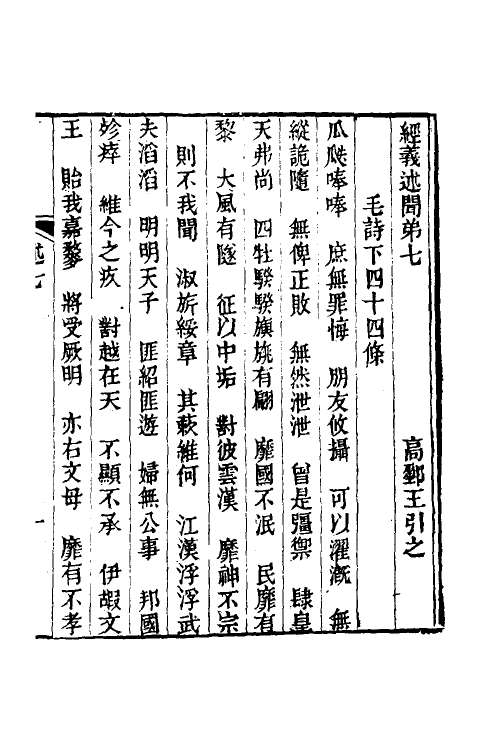 經義述聞弟七　　　　　高郵王引之
毛詩下四十四條
瓜瓞唪唪　庶無罪悔　朋友攸攝　可以濯溉　無
縱詭隨　無俾正敗　無然泄泄　曾是彊禦　肆皇
天弗尚　四牡騤騤旟旐有翩　靡國不泯　民靡有
黎　大風有隧　征以中垢　對彼雲漢　靡神不宗
則不我聞　淑旂綏章　其蔌維何　江漢浮浮武
夫滔滔　明明天子　匪紹匪遊　婦無公事　邦國
殄瘁　維今之疚　對越在天　不顯不承　伊嘏文
王　貽我嘉麰　將受厥明　亦右文母　靡有不孝
述七　一